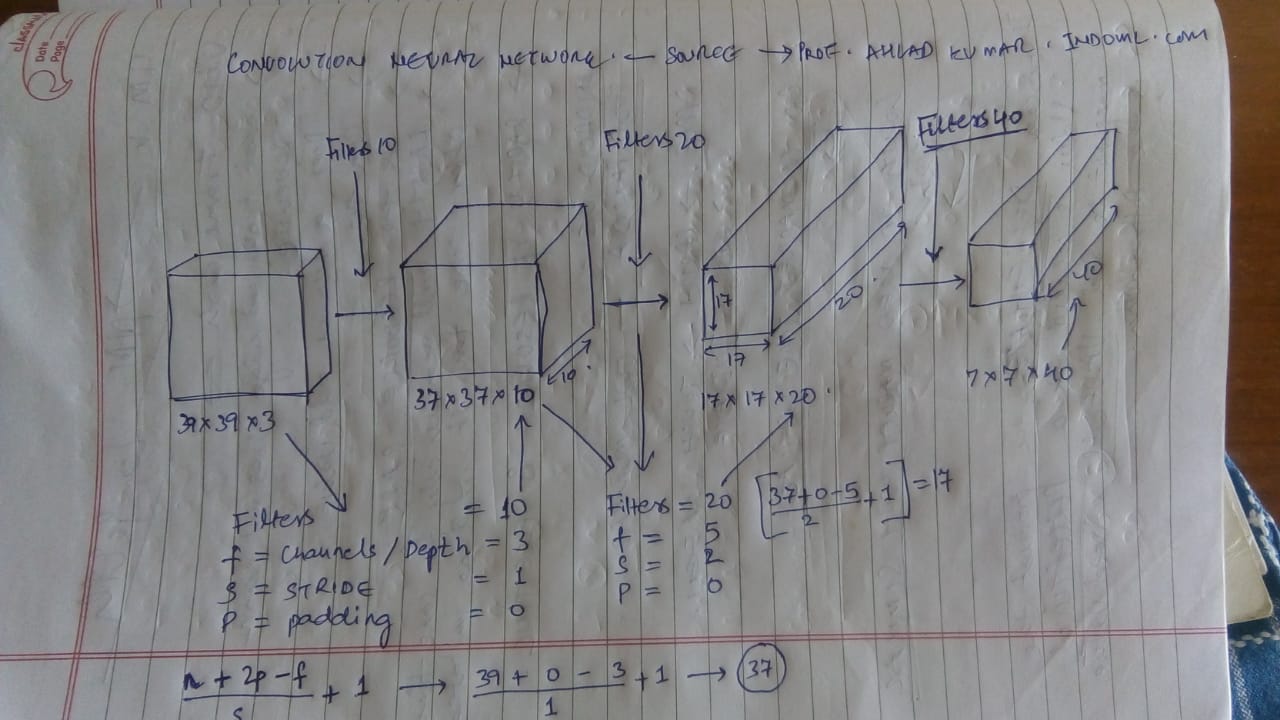 classmate
Date
Page
CONVOLUTION NEURAL NETWORK. ← SOURCE → PROF. AHLAD KUMAR. INDOML.COM
Filters 10
Filters 20
Filters 40
17
17
20
40
10
39×39×3
37×37×10
17×17×20
7×7×40
Filters = 10
f = Channels/Depth = 3
S = STRIDE = 1
P = padding = 0
Filters = 20
f = 5
S = 2
P = 0
[(37+0-5)/2 + 1] = 17
(n + 2p - f)/s + 1 → (39 + 0 - 3)/1 + 1 → 37